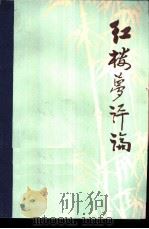 红楼梦评论